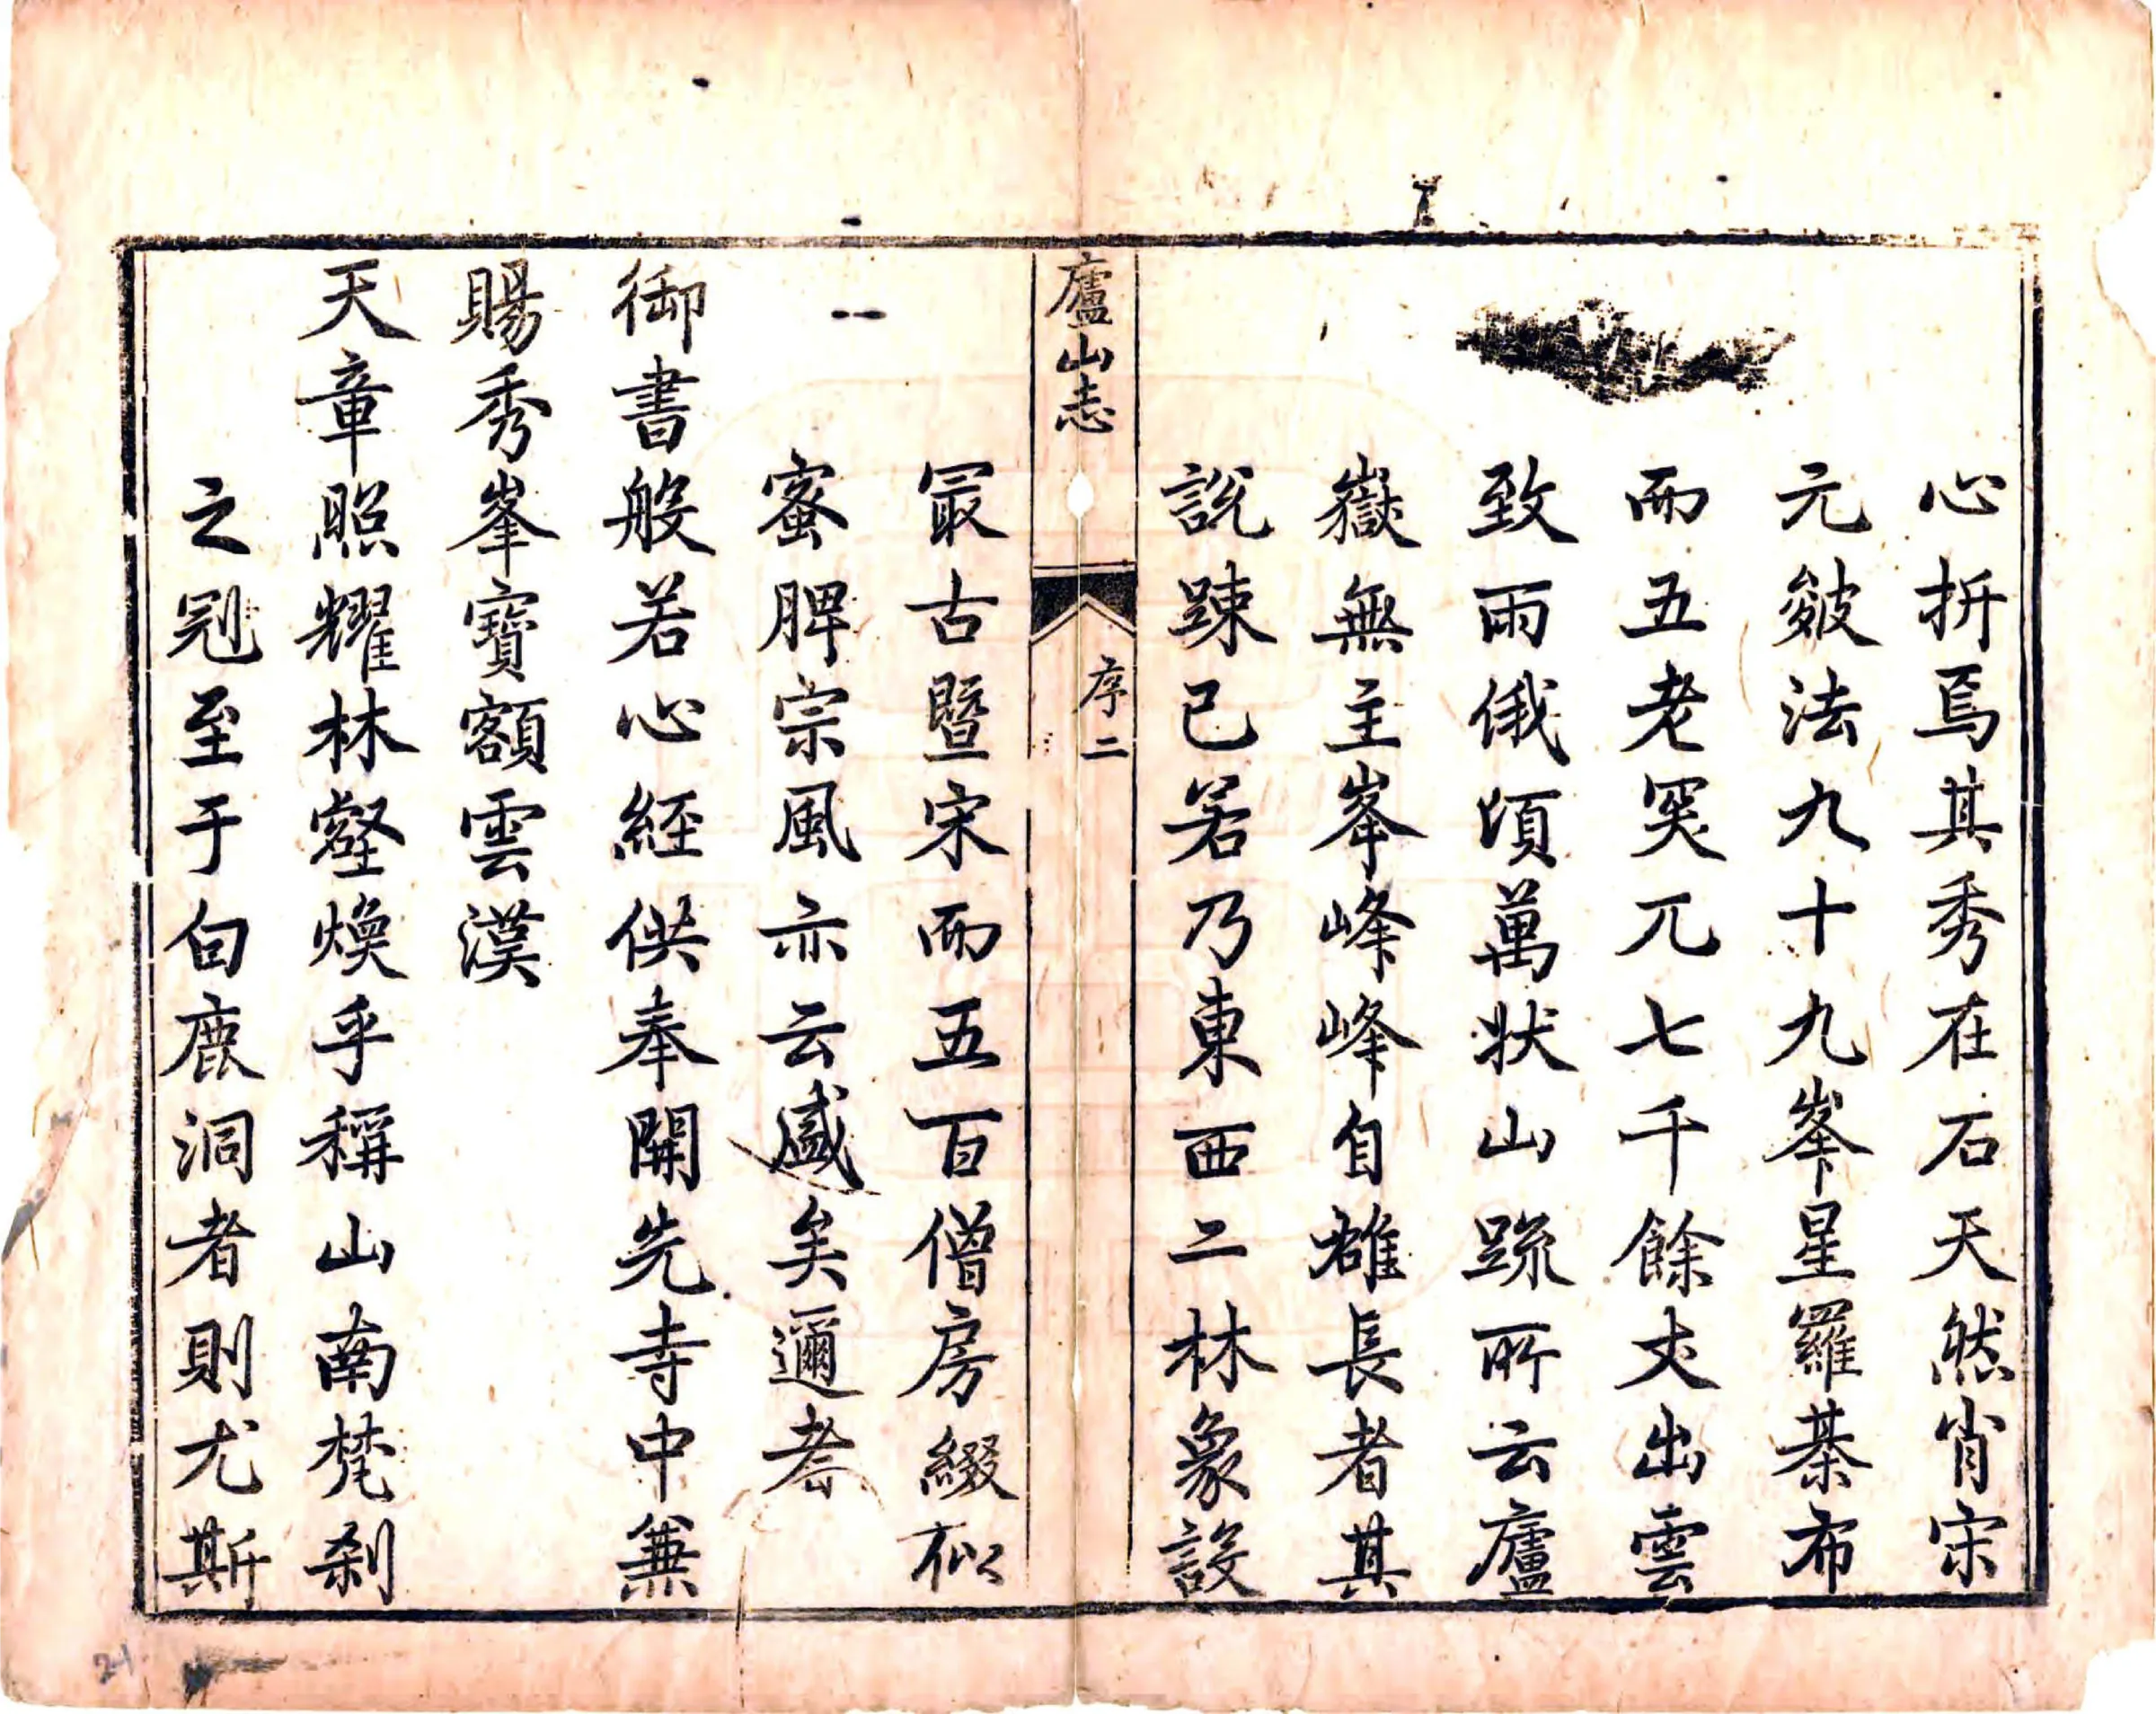 心折焉其秀在石天然肖宋
元皴法九十九峯星羅棊布
而五老突兀七千餘丈出雲
致雨俄頃萬狀山疏所云廬
嶽無主峯峰峰自雄長者其
說踈已若乃東西二林象設
廬山志
序二
冣古暨宋而五百僧房綴似
蜜脾宗風亦云盛矣邇者
御書般若心經供奉開先寺中兼
賜秀峯寶額雲漢
天章照耀林壑煥乎稱山南梵刹
之冠至于白鹿洞者則尤斯